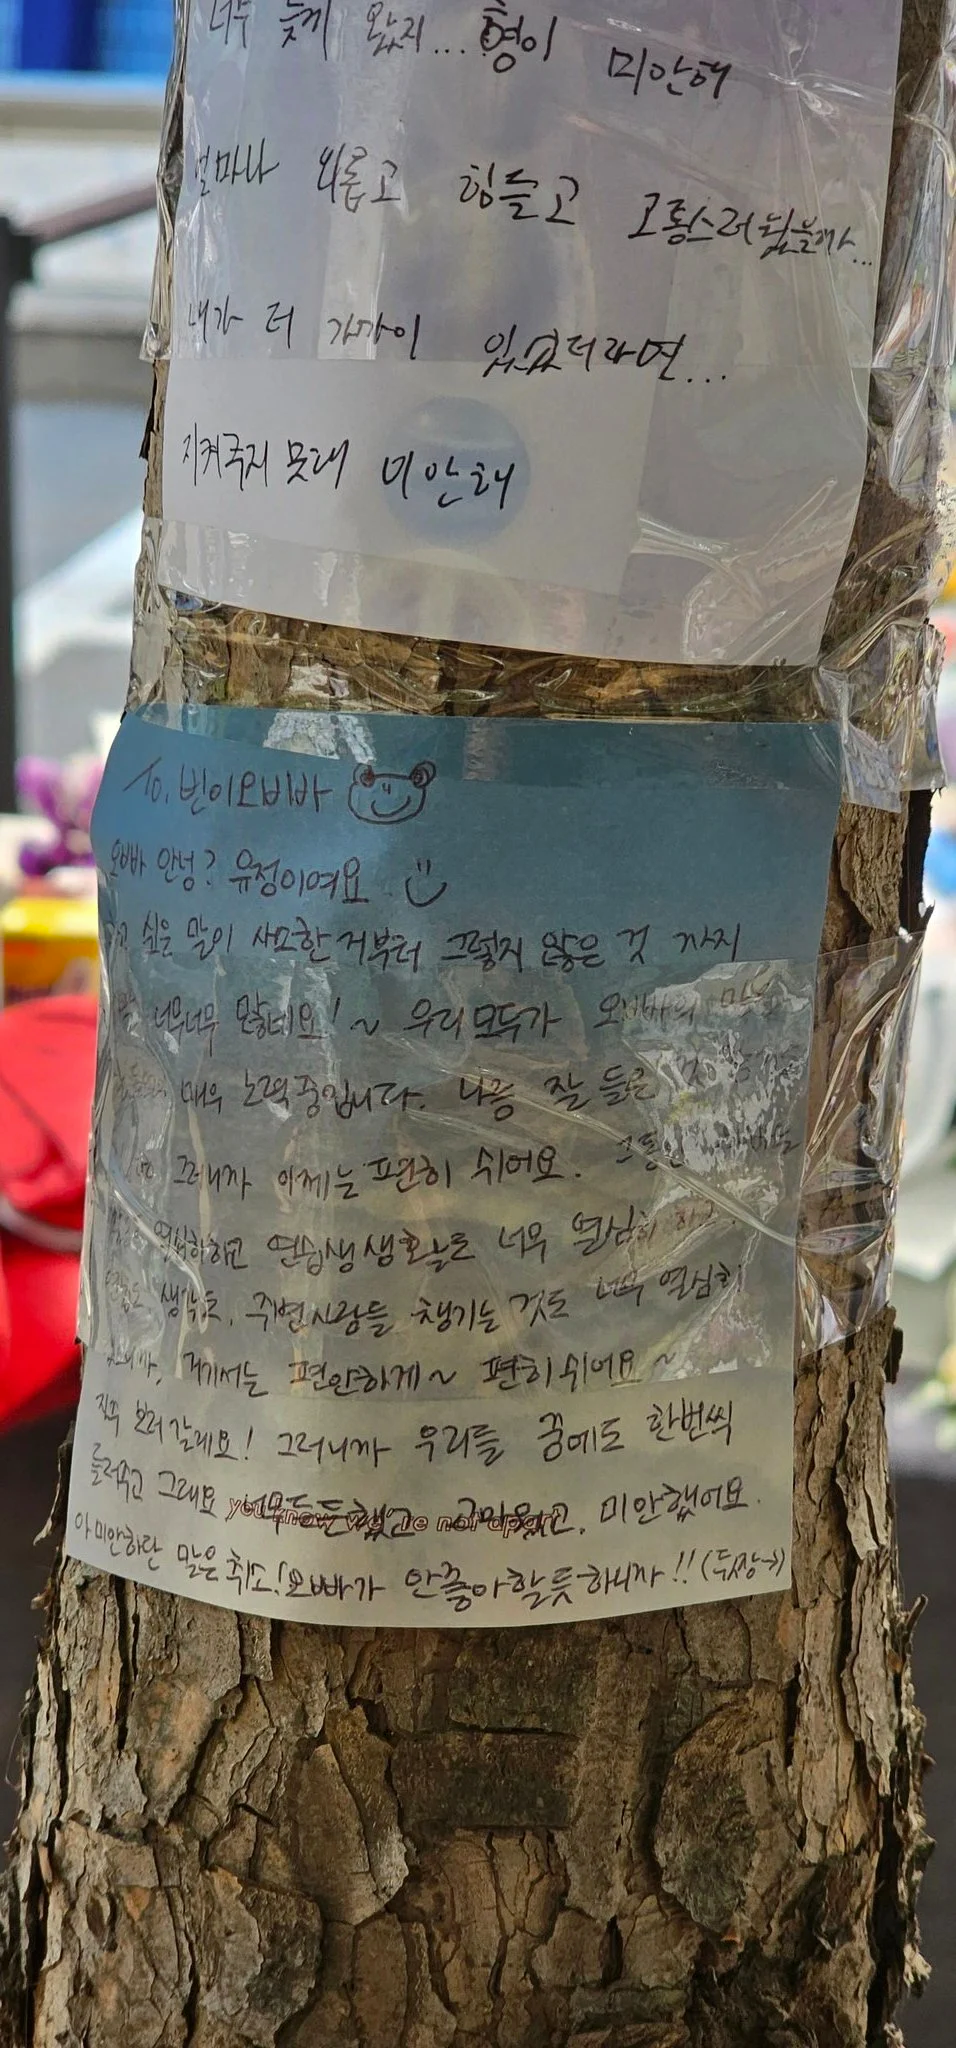 너무 늦게 왔지... 형이 미안해
얼마나 외롭고 힘들고 고통스러웠을까...
내가 더 가까이 있었더라면...
지켜주지 못해 미안해
To. 빈이오빠빠
오빠 안녕? 유정이여요.
싶은 말이 사소한 거부터 그렇지 않은 것 까지
너무너무 많네요! ~ 우리 모두가 오빠의
매우 노력중입니다. 나름 잘 들
그러니까 이제는 편히 쉬어요.
열심히하고 연습생 생활도 너무 열심히 하고
생각도, 주변 사람들 챙기는 것도 너무 열심히
거기서는 편안하게~ 편히 쉬어요~
자주 보러갈게요! 그러니까 우리들 꿈에도 한번씩
들러주고 그래요 너무 든든했고 고마웠고, 미안했어요.
you know we're not apart
아 미안하단 말은 취소! 오빠가 안좋아할듯하니까!! (두장→)